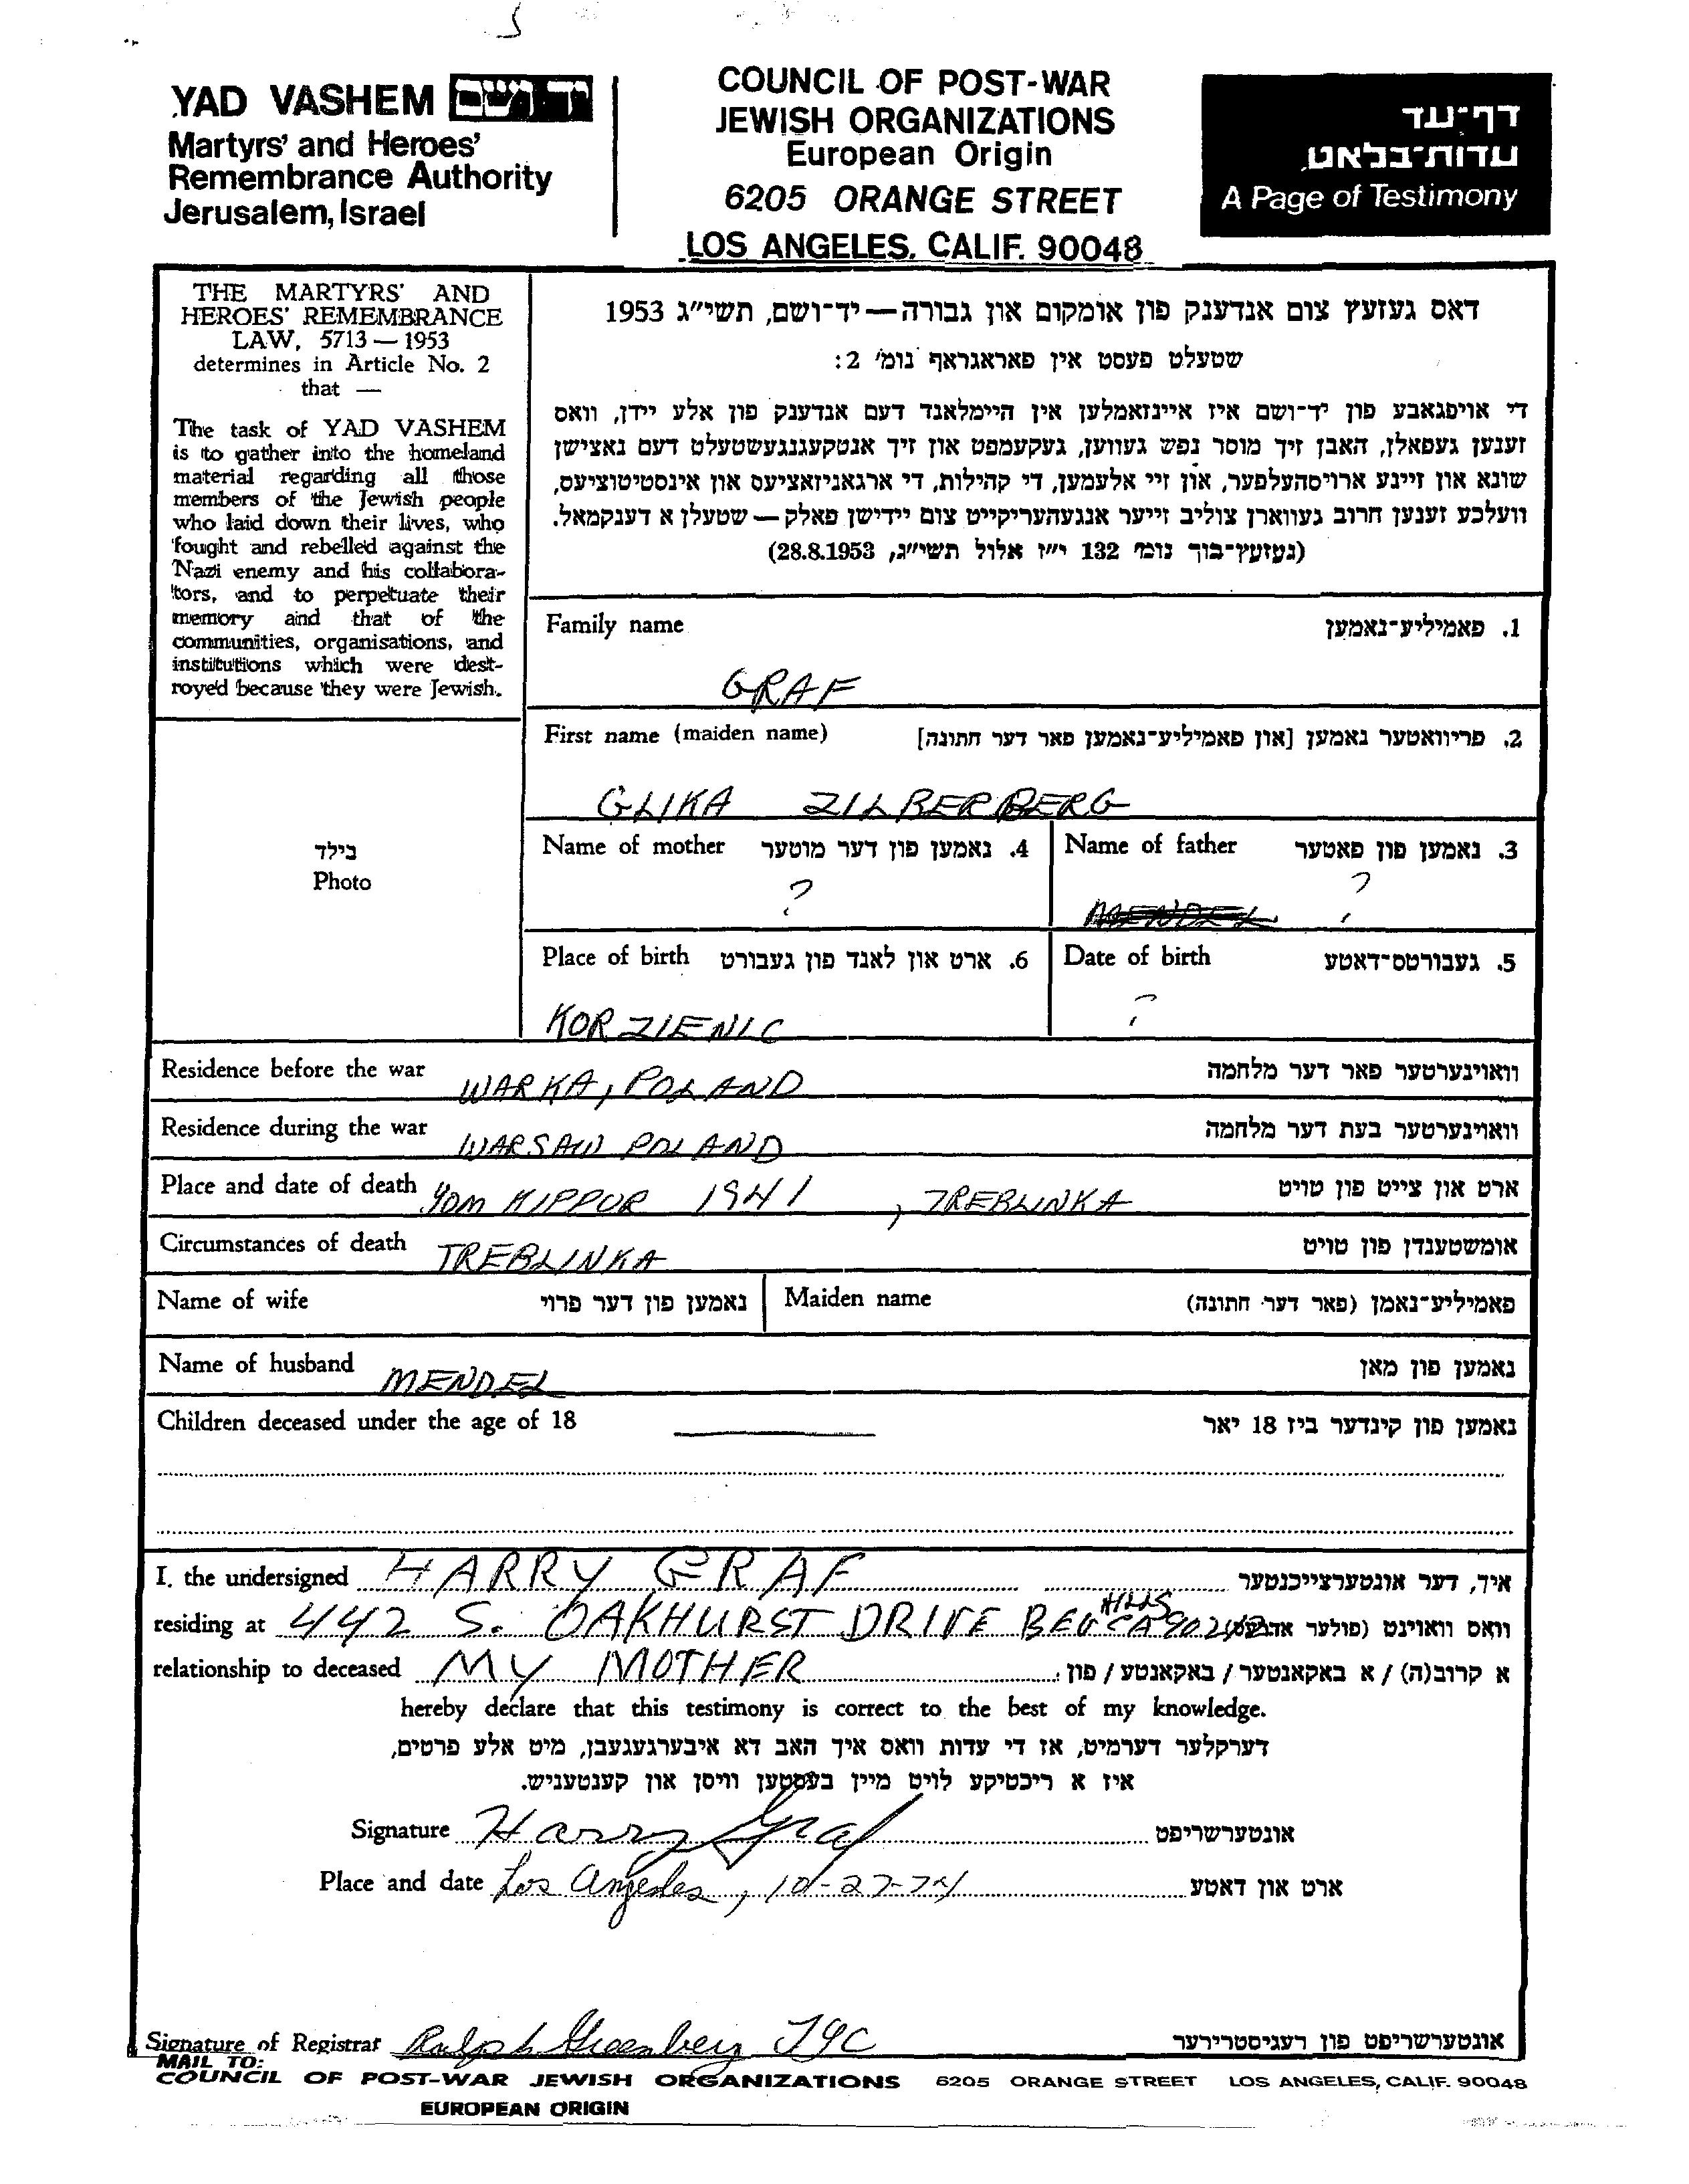 YAD VASHEM יד ושם
Martyrs' and Heroes'
Remembrance Authority
Jerusalem, Israel
COUNCIL OF POST-WAR
JEWISH ORGANIZATIONS
European Origin
6205 ORANGE STREET
LOS ANGELES, CALIF. 90048
דף-עד
עדות-בלאט
A Page of Testimony
THE MARTYRS' AND
HEROES' REMEMBRANCE
LAW, 5713 — 1953
determines in Article No. 2
that —
The task of YAD VASHEM
is to gather into the homeland
material regarding all those
members of the Jewish people
who laid down their lives, who
fought and rebelled against the
Nazi enemy and his collabora-
tors, and to perpetuate their
memory and that of the
communities, organisations, and
institutions which were dest-
royed because they were Jewish.
דאס געזעץ צום אנדענק פון אומקום און גבורה — יד-ושם, תשי"ג 1953
שטעלט פעסט אין פאראגראף נומ' 2:
די אויפגאבע פון יד-ושם איז איינזאמלען אין היימלאנד דעם אנדענק פון אלע יידן, וואס
זענען געפאלן, האבן זיך מוסר נפש געווען, געקעמפט און זיך אנטקעגנגעשטעלט דעם נאצישן
שונא און זיינע ארויסהעלפער, און זיי אלעמען, די קהילות, די ארגאניזאציעס און אינסטיטוציעס,
וועלכע זענען חרוב געווארן צוליב זייער אנגעהעריקייט צום יידישן פאלק — שטעלן א דענקמאל.
(געזעץ-בוך נומ' 132 י"ז אלול תשי"ג, 28.8.1953)
בילד
Photo
Family name 1. פאמיליע-נאמען
GRAF
First name (maiden name) 2. פריוואטער נאמען [און פאמיליע-נאמען פאר דער חתונה]
GLIKA ZILBERBERG
Name of mother 4. נאמען פון דער מוטער
?
Name of father 3. נאמען פון פאטער
MENDEL ?
Place of birth 6. ארט און לאנד פון געבורט
KORZIENIC
Date of birth 5. געבורטס-דאטע
?
Residence before the war WARKA, POLAND וואוינערטער פאר דער מלחמה
Residence during the war WARSAW POLAND וואוינערטער בעת דער מלחמה
Place and date of death YOM KIPPUR 1941, TREBLINKA ארט און צייט פון טויט
Circumstances of death TREBLINKA אומשטענדן פון טויט
Name of wife נאמען פון דער פרוי Maiden name פאמיליע-נאמן (פאר דער חתונה)
Name of husband MENDEL נאמען פון מאן
Children deceased under the age of 18 נאמען פון קינדער ביז 18 יאר
I, the undersigned HARRY GRAF איך, דער אונטערצייכנטער
residing at 442 S. OAKHURST DRIVE BEV HILLS CA 90212 וואס וואוינט (פולער אדרעס)
relationship to deceased MY MOTHER א קרוב(ה) / א באקאנטער / באקאנטע / פון:
hereby declare that this testimony is correct to the best of my knowledge.
דערקלער דערמיט, אז די עדות וואס איך האב דא איבערגעגעבן, מיט אלע פרטים,
איז א ריכטיקע לויט מיין בעסטען וויסן און קענטעניש.
Signature Harry Graf אונטערשריפט
Place and date Los Angeles, 10-27-74 ארט און דאטע
Signature of Registrar Ralph Greenberg JYC אונטערשריפט פון רעגיסטרירער
MAIL TO:
COUNCIL OF POST-WAR JEWISH ORGANIZATIONS 6205 ORANGE STREET LOS ANGELES, CALIF. 90048
EUROPEAN ORIGIN